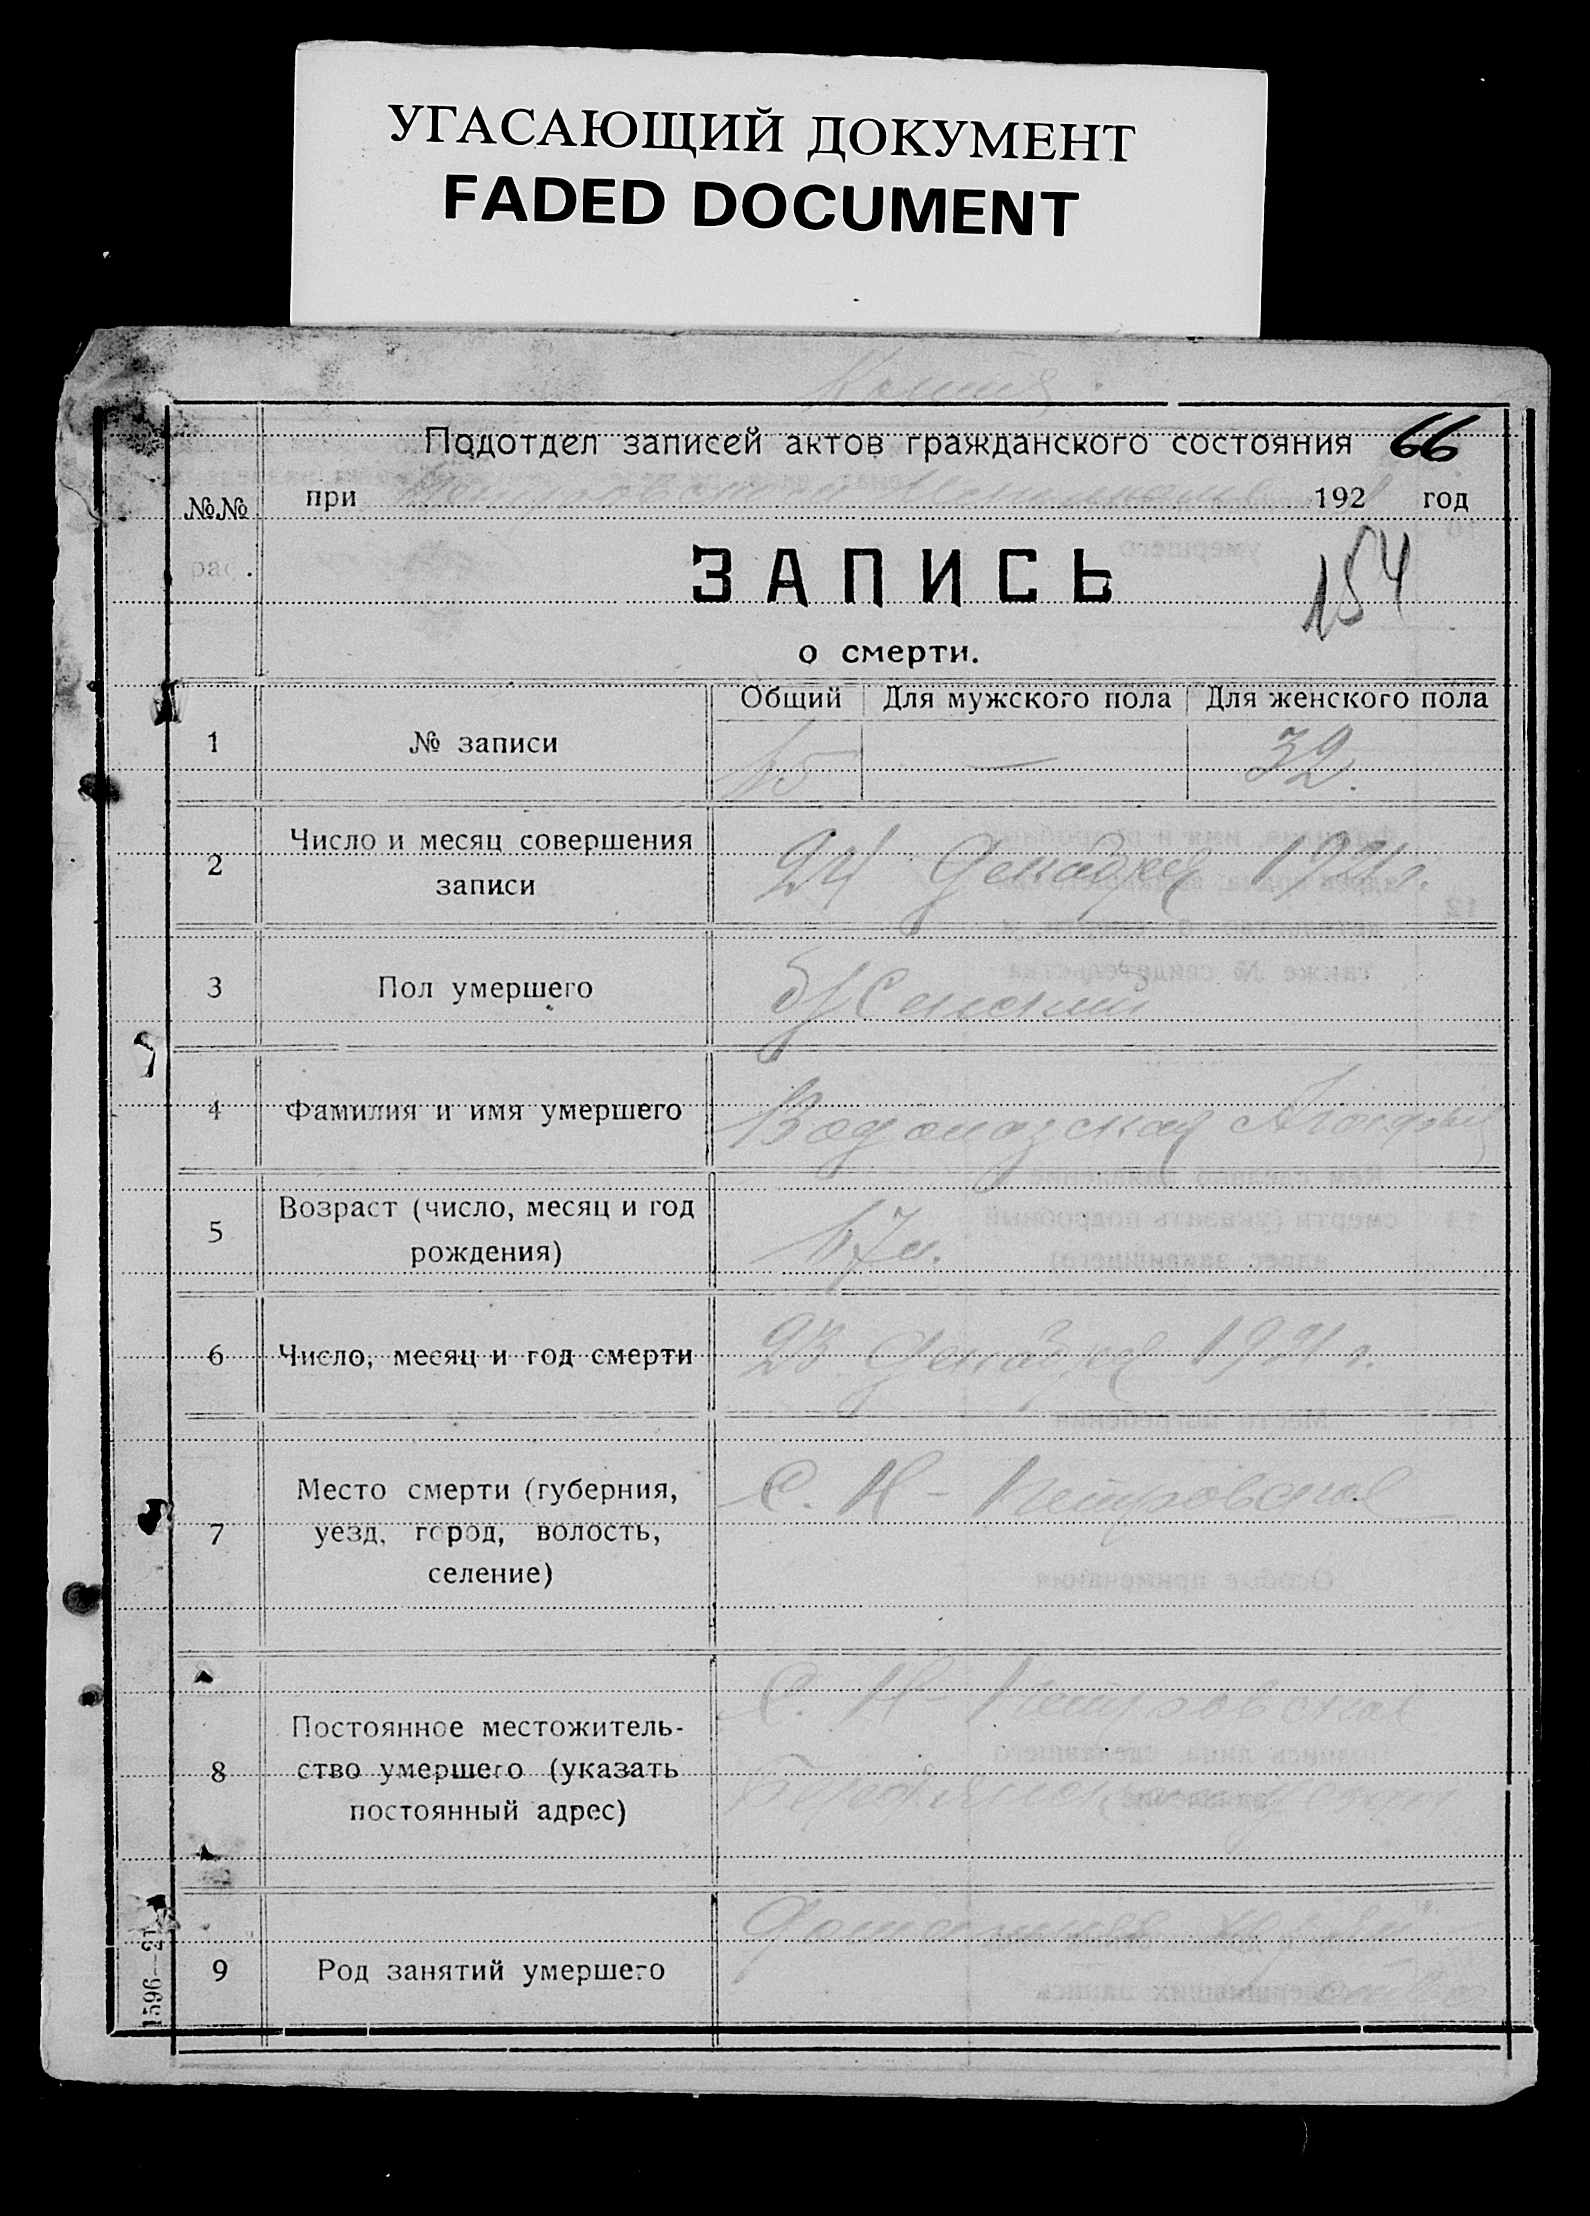 УГАСАЮЩИЙ ДОКУМЕНТ
FADED DOCUMENT
Копия.
Подотдел записей актов гражданского состояния 66
№№ при 1921 год
ЗАПИСЬ
154
о смерти.
Общий Для мужского пола Для женского пола
1 № записи — 32.
2 Число и месяц совершения
записи 24 Декабря 1921 г.
3 Пол умершего Женский
4 Фамилия и имя умершего Водолазская Агафья
5 Возраст (число, месяц и год
рождения) 67 л.
6 Число, месяц и год смерти 23 Декабря 1921 г.
Место смерти (губерния, С. Н-Петровская
7 уезд, город, волость,
селение)
С. Н-Петровская
Постоянное местожитель-
8 ство умершего (указать
постоянный адрес)
9 Род занятий умершего
1596—21